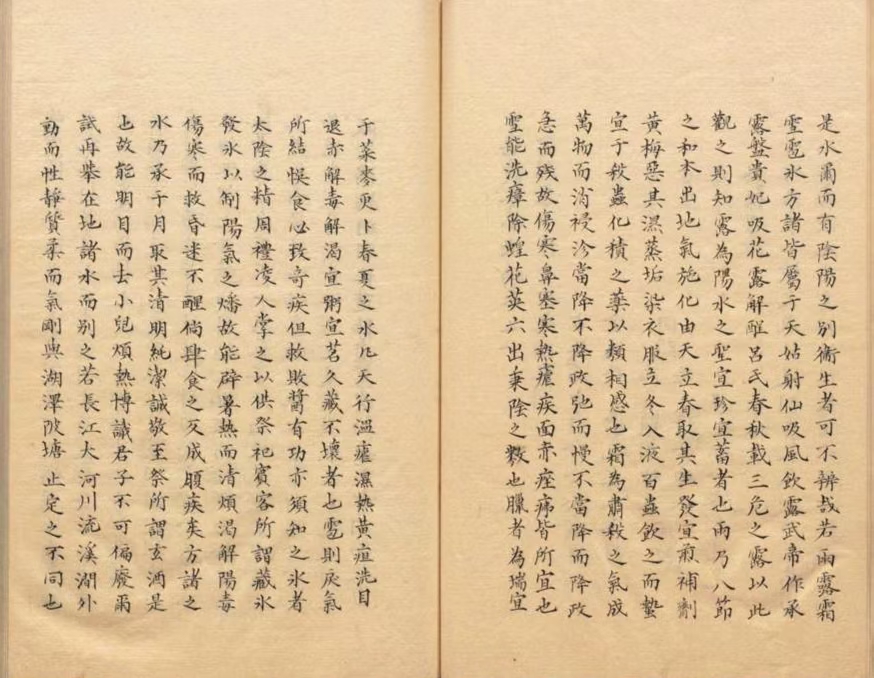 是水爾而有陰陽之別衛生者可不辨哉若雨露霜
雪雹氷方諸皆屬于天姑射仙吸風飲露武帝作承
露盤貴妃吸花露解酲呂氏春秋載三危之露以此
觀之則知露為陽水之聖宜珍宜蓄者也雨乃八節
之和本出地氣施化由天立春取其生發宜煎補劑
黃梅惡其濕蒸垢染衣服立冬入液百蟲飲之而蟄
宜于殺蟲化積之藥以類相感也霜為肅殺之氣成
萬物而消祲沴當降不降政弛而慢不當降而降政
急而殘故傷寒鼻塞寒熱瘧疾面赤痤疿皆所宜也
雪能洗瘴除蝗花英六出乗陰之數也臘者為瑞宜
于菜麥更卜春夏之水凡天行溫瘧濕熱黃疸洗目
退赤解毒解渴宜粥宜茗久藏不壞者也雹則戾氣
所結悞食必致竒疾但救敗醬有功亦須知之氷者
太陰之精周禮凌人掌之以供祭祀賔客所謂藏氷
發氷以制陽氣之燔故能辟暑熱而清煩渴解陽毒
傷寒而救昏迷不醒倘肆食之反成腹疾矣方諸之
水乃承于月取其清明純潔誠敬至祭所謂玄酒是
也故能明目而去小兒煩熱博識君子不可偏廢爾
試再舉在地諸水而別之若長江大河川流溪湖外
動而性靜質柔而氣剛與湖澤陂塘止定之不同也